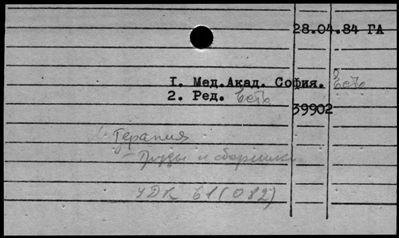 28.04.84 ГА
I. Мед.Акад. София. есть
2. Ред. есть
39902
1. Терапия
- Труды и сборники
УДК 61(082)